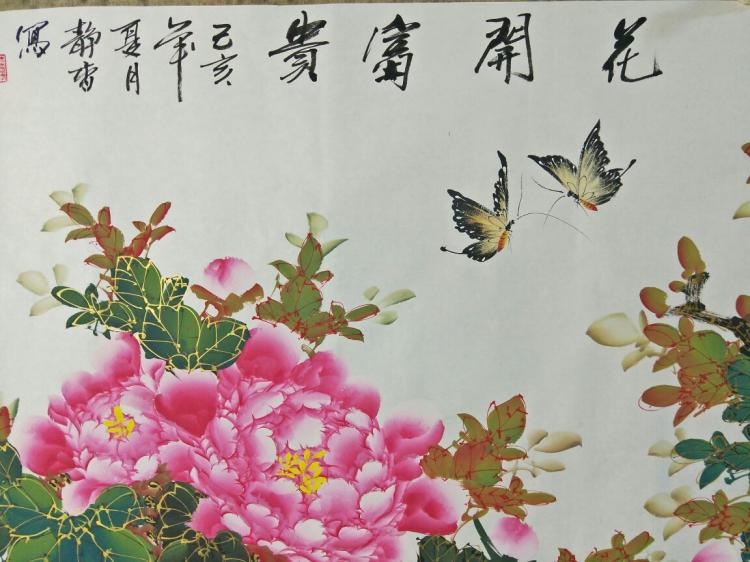 花開富貴
己亥
年
夏月
靜香
寫